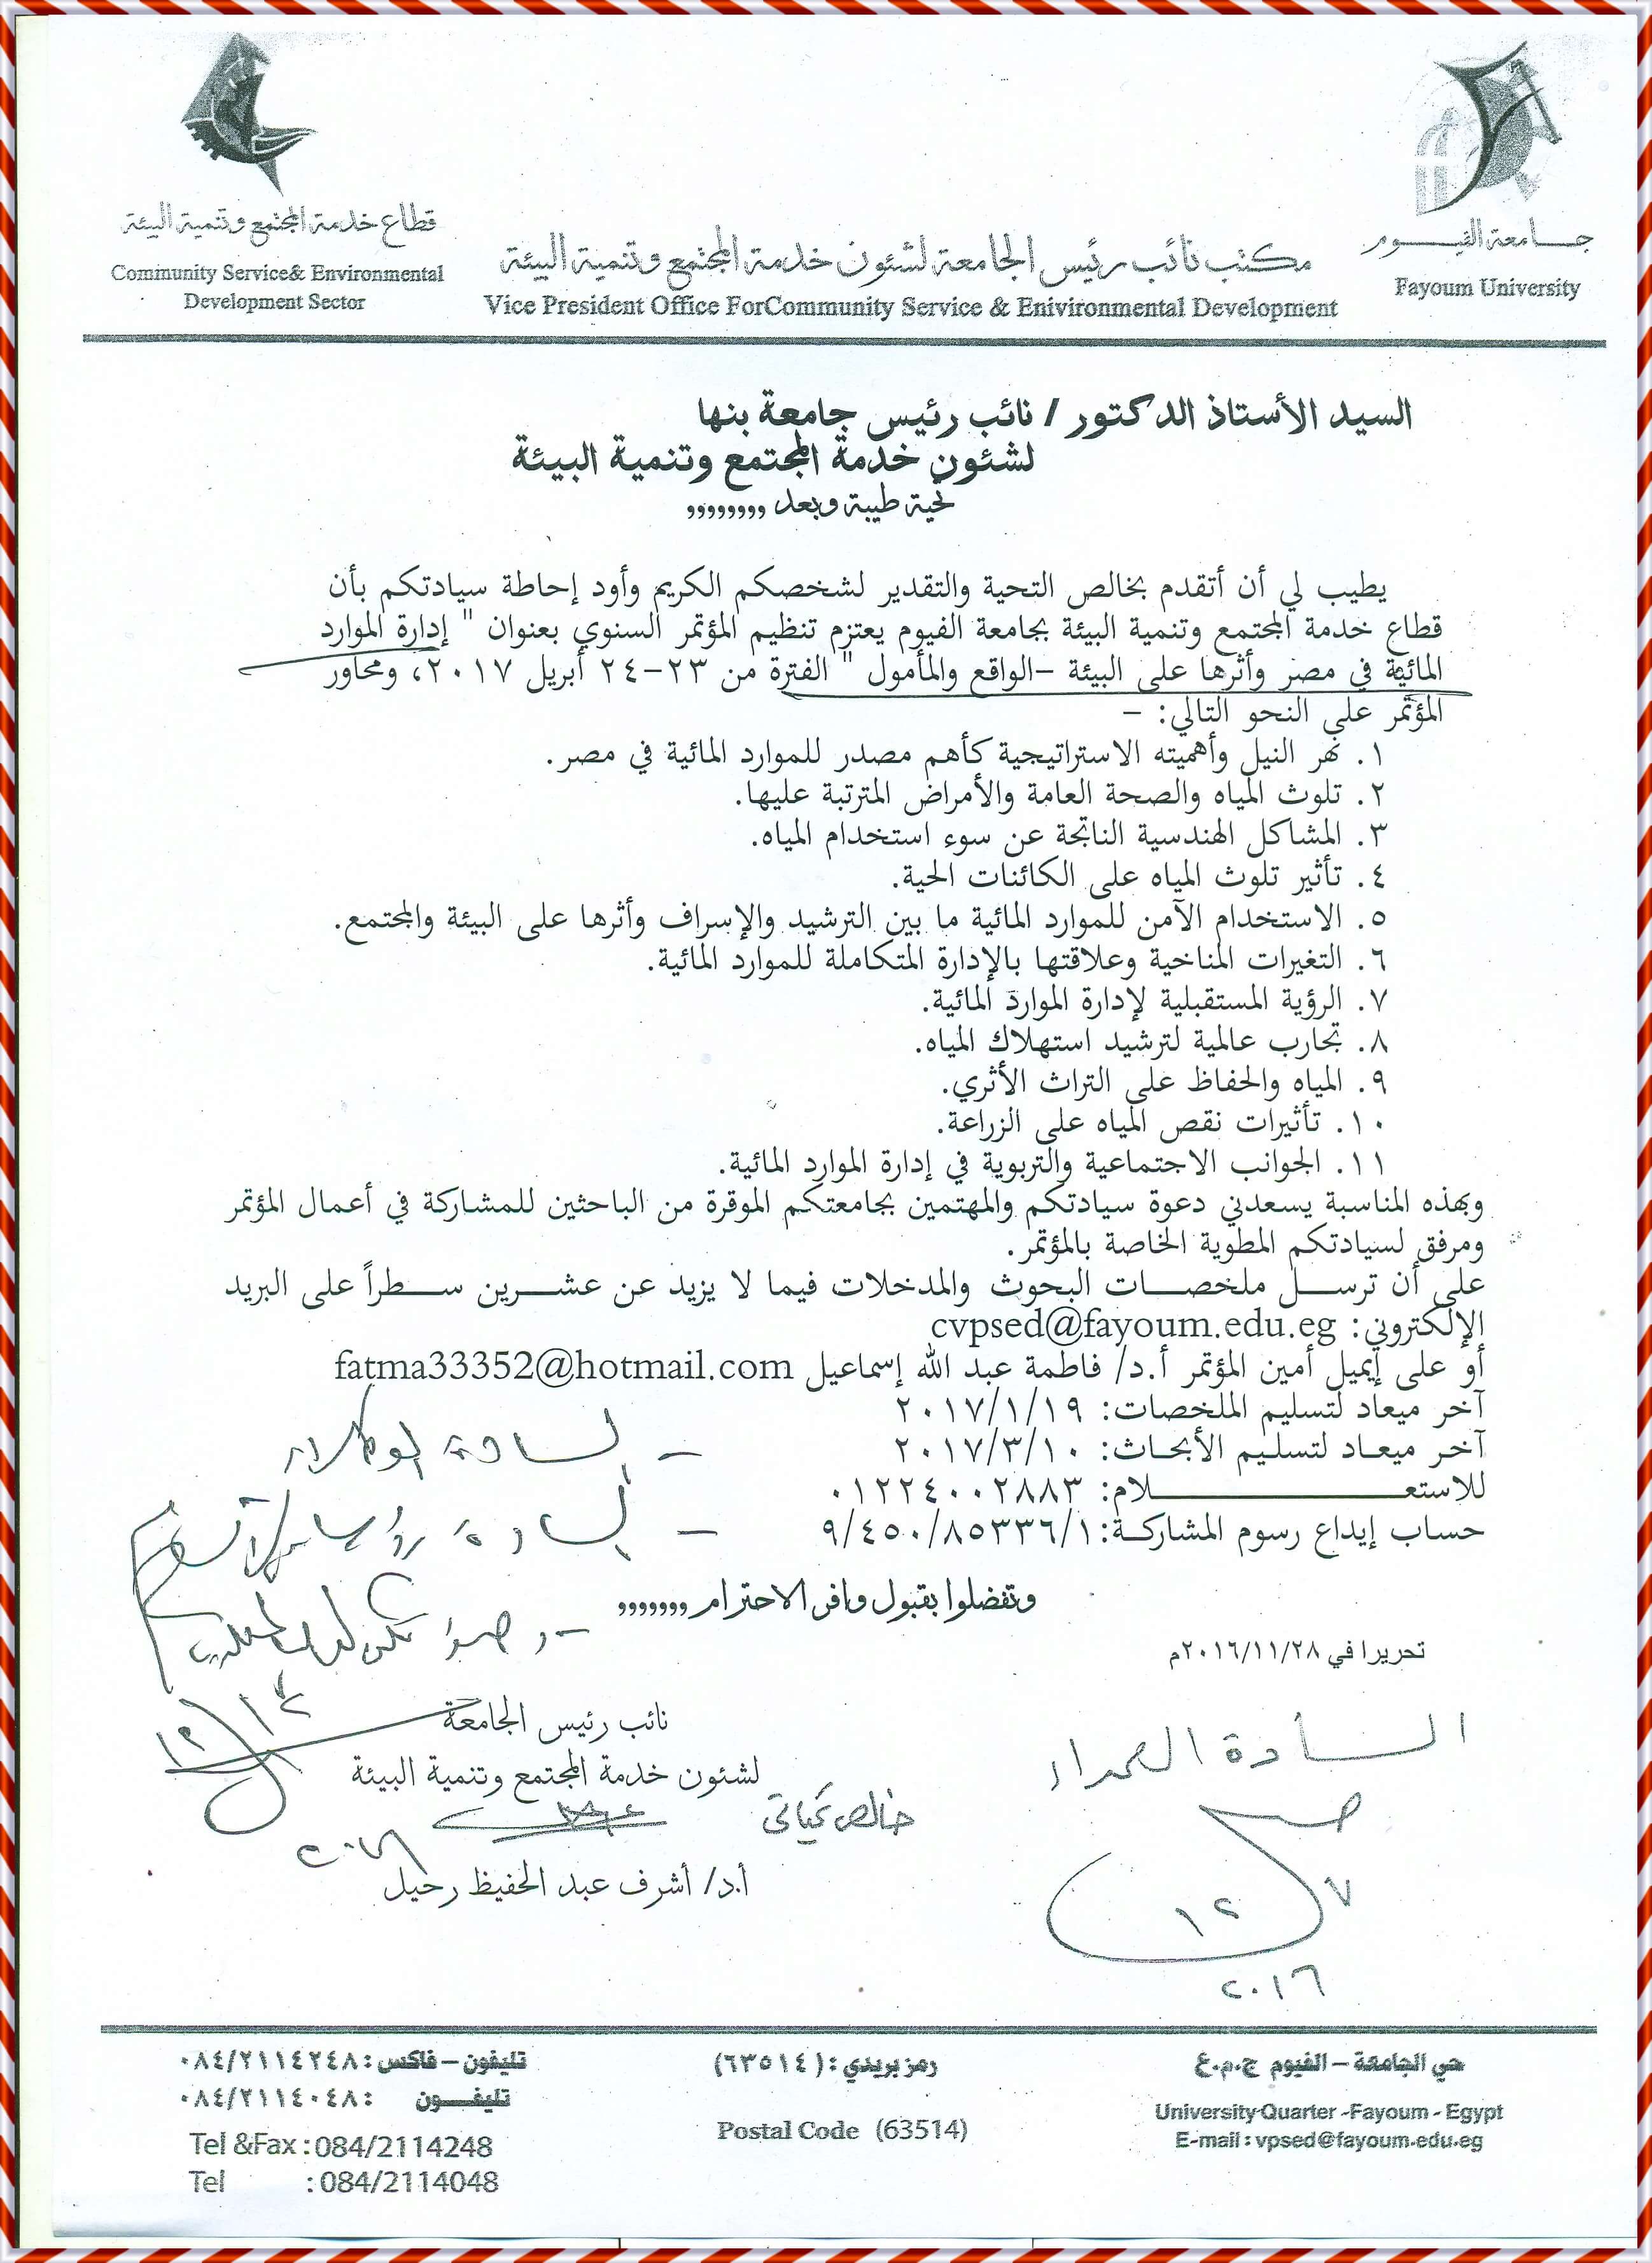 جامعة الفيوم
Fayoum University
مكتب نائب رئيس الجامعة لشئون خدمة المجتمع وتنمية البيئة
Vice President Office ForCommunity Service & Enivironmental Development
قطاع خدمة المجتمع وتنمية البيئة
Community Service& Environmental
Development Sector
السيد الأستاذ الدكتور / نائب رئيس جامعة بنها
لشئون خدمة المجتمع وتنمية البيئة
تحية طيبة وبعد ,,,,,,,,
يطيب لي أن أتقدم بخالص التحية والتقدير لشخصكم الكريم وأود إحاطة سيادتكم بأن
قطاع خدمة المجتمع وتنمية البيئة بجامعة الفيوم يعتزم تنظيم المؤتمر السنوي بعنوان " إدارة الموارد
المائية في مصر وأثرها على البيئة –الواقع والمأمول " الفترة من ٢٣-٢٤ أبريل ٢٠١٧، ومحاور
المؤتمر على النحو التالي: –
١. نهر النيل وأهميته الاستراتيجية كأهم مصدر للموارد المائية في مصر.
٢. تلوث المياه والصحة العامة والأمراض المترتبة عليها.
٣. المشاكل الهندسية الناتجة عن سوء استخدام المياه.
٤. تأثير تلوث المياه على الكائنات الحية.
٥. الاستخدام الآمن للموارد المائية ما بين الترشيد والإسراف وأثرها على البيئة والمجتمع.
٦. التغيرات المناخية وعلاقتها بالإدارة المتكاملة للموارد المائية.
٧. الرؤية المستقبلية لإدارة الموارد المائية.
٨. تجارب عالمية لترشيد استهلاك المياه.
٩. المياه والحفاظ على التراث الأثري.
١٠. تأثيرات نقص المياه على الزراعة.
١١. الجوانب الاجتماعية والتربوية في إدارة الموارد المائية.
وبهذه المناسبة يسعدني دعوة سيادتكم والمهتمين بجامعتكم الموقرة من الباحثين للمشاركة في أعمال المؤتمر
ومرفق لسيادتكم المطوية الخاصة بالمؤتمر.
على أن ترسل ملخصات البحوث والمدخلات فيما لا يزيد عن عشرين سطراً على البريد
الإلكتروني: cvpsed@fayoum.edu.eg
أو على إيميل أمين المؤتمر أ.د/ فاطمة عبد الله إسماعيل fatma33352@hotmail.com
آخر ميعاد لتسليم الملخصات: ٢٠١٧/١/١٩
آخر ميعاد لتسليم الأبحاث: ٢٠١٧/٣/١٠
للاستعلام: ٠١٢٢٤٠٠٢٨٨٣
حساب إيداع رسوم المشاركة: ٩/٤٥٠/٨٥٣٣٦/١
– السادة الوكلاء
– السادة رؤساء الأقسام
وتفضلوا بقبول وافر الاحترام ,,,,,,,
تحريرا في ٢٠١٦/١١/٢٨م
١٢
نائب رئيس الجامعة
لشئون خدمة المجتمع وتنمية البيئة
خالص تحياتي
أ.د/ أشرف عبد الحفيظ رحيل
السادة العمداء
٧
١٢
٢٠١٦
حي الجامعة – الفيوم ج.م.ع
University Quarter -Fayoum - Egypt
E-mail : vpsed@fayoum.edu.eg
رمز بريدي : (٦٣٥١٤)
Postal Code (63514)
تليفون – فاكس : ٠٨٤/٢١١٤٢٤٨
تليفون : ٠٨٤/٢١١٤٠٤٨
Tel &Fax : 084/2114248
Tel : 084/2114048